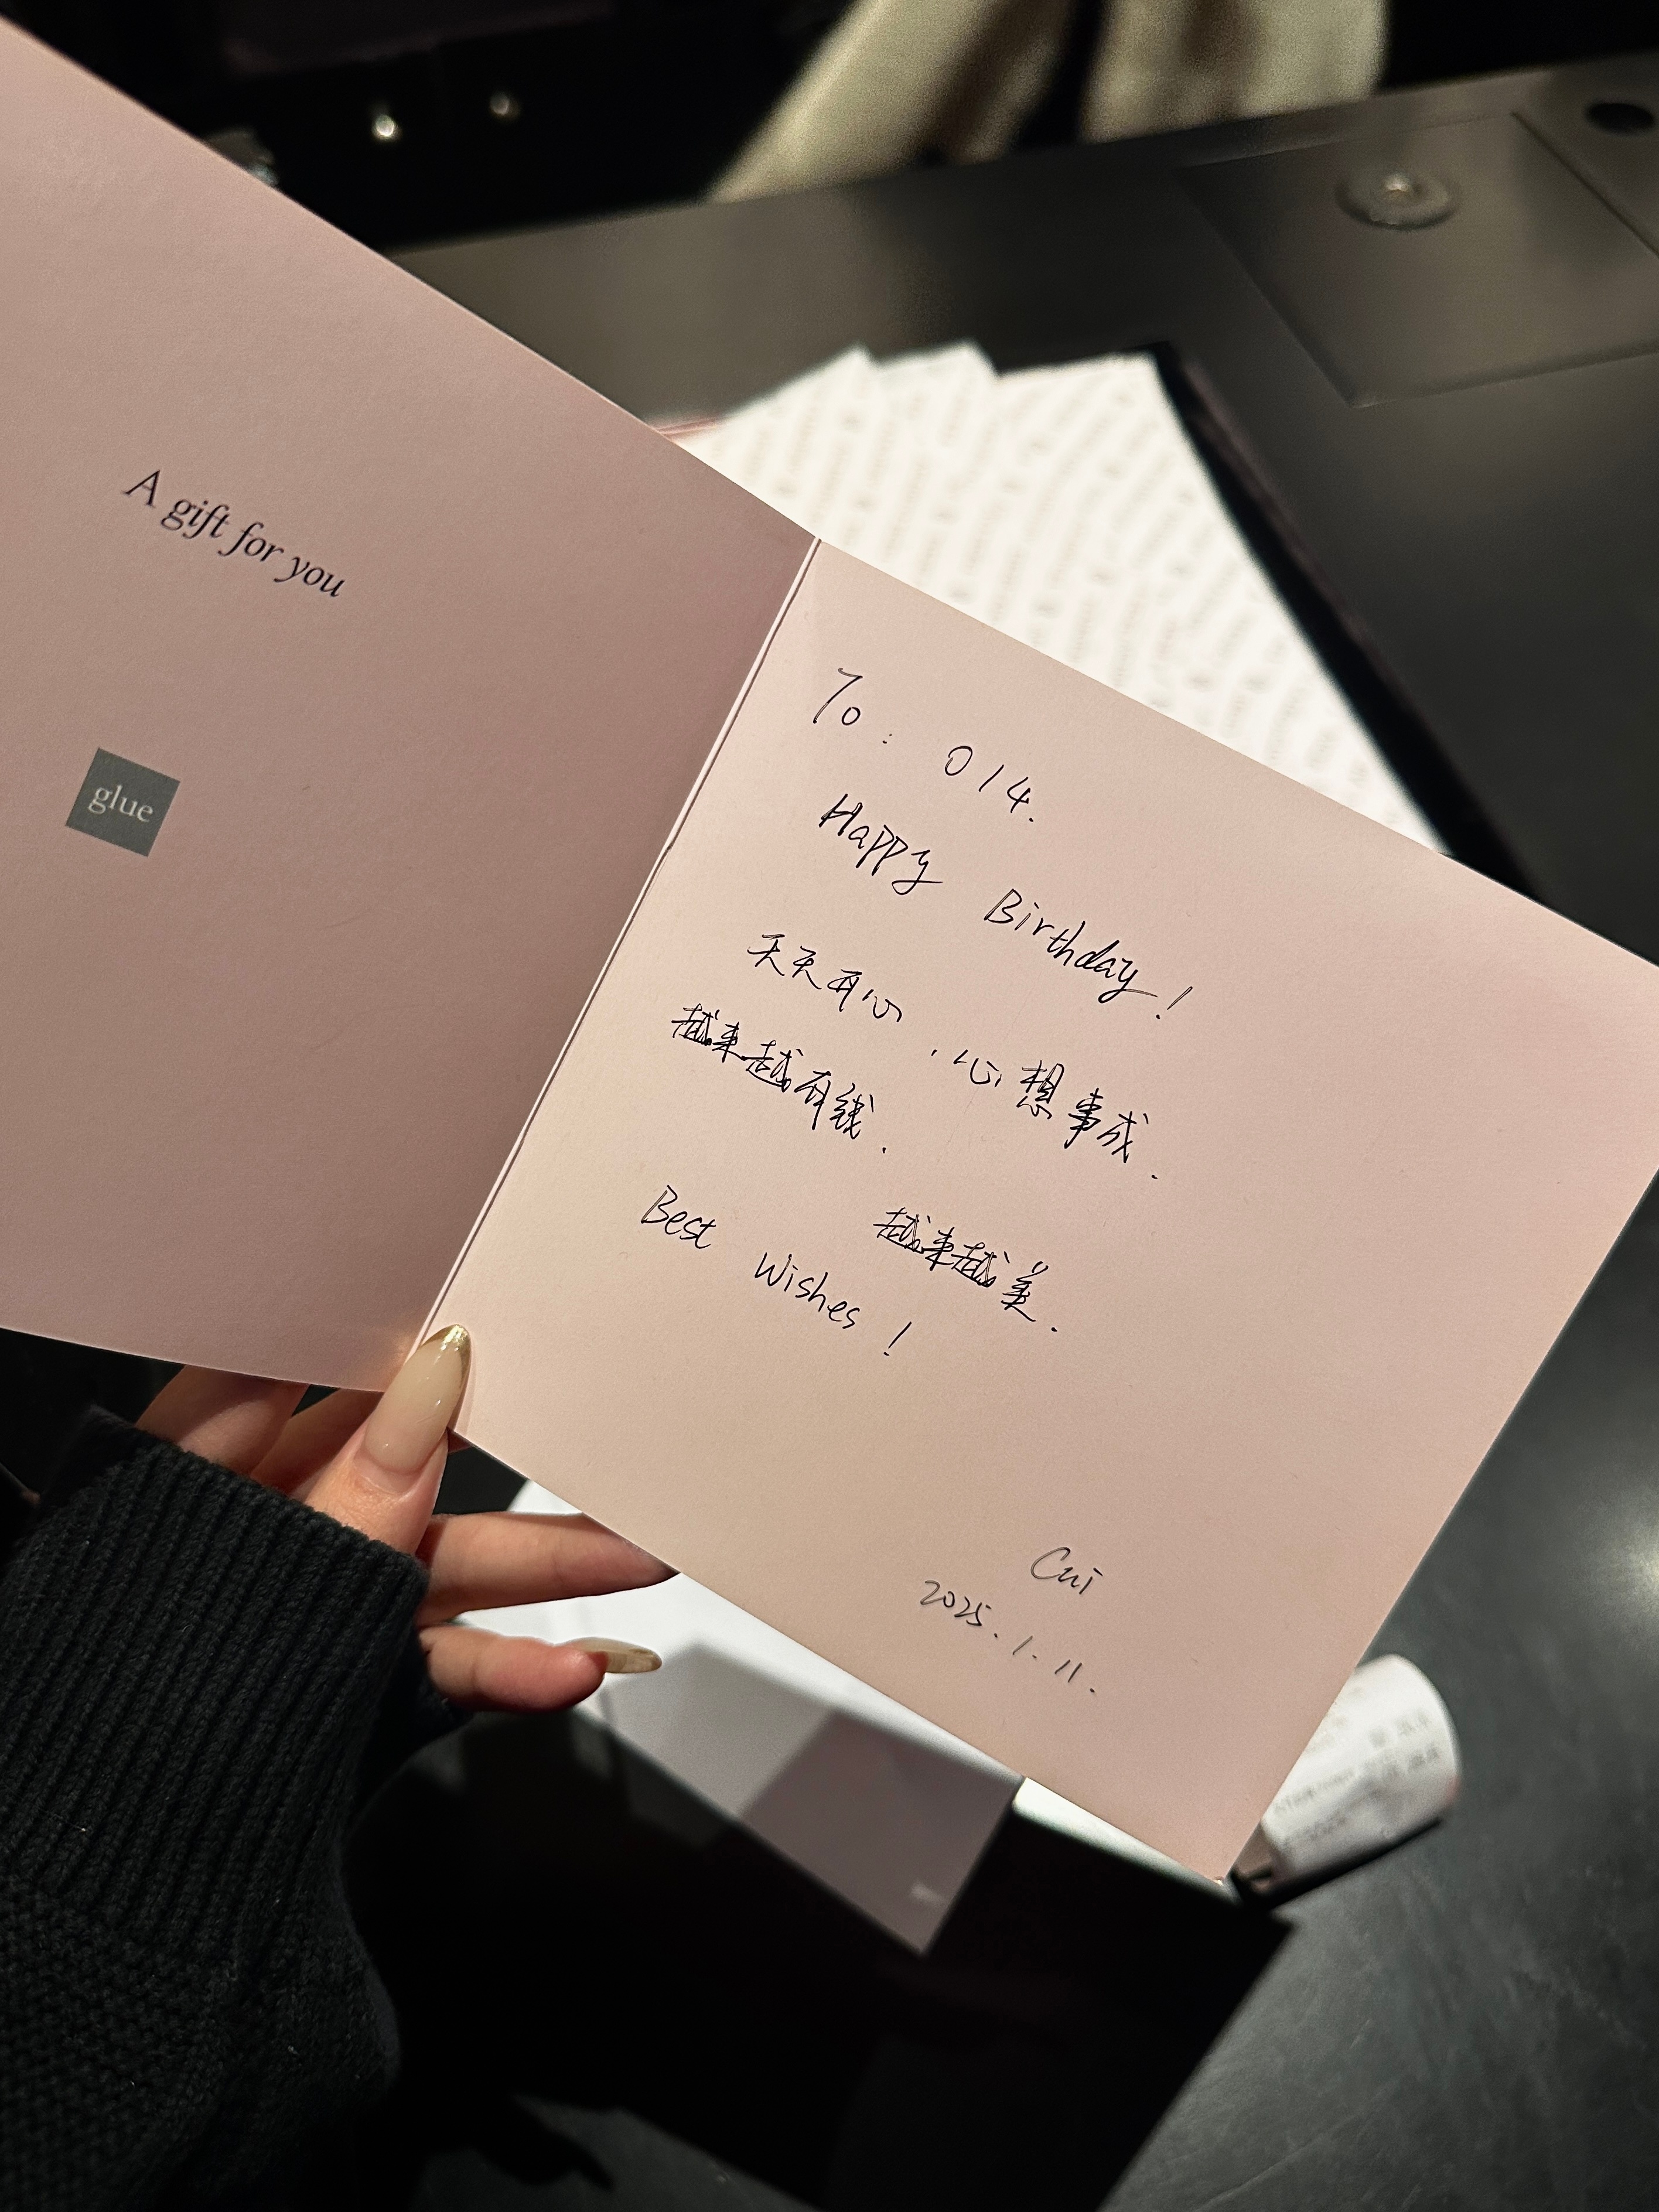 A gift for you
glue
To: 014.
Happy Birthday!
天天开心,心想事成.
越来越有钱.
越来越美.
Best Wishes!
Cui
2025.1.11.